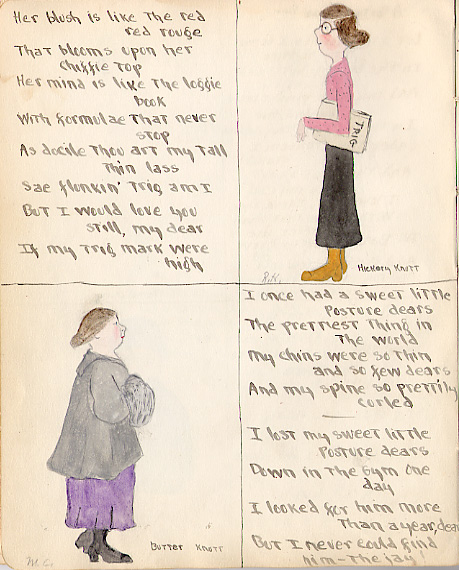 Her blush is like the red
red rouge
That blooms upon her
chizzie top
Her mind is like the loggie
book
With formulae that never
stop
As docile thou art my tall
thin lass
Sae flonkin' trig am I
But I would love you
still, my dear
If my trig mark were
high
TRIG
Hickory Knutt
I once had a sweet little
Posture dears
The prettiest thing in
the world
My chins were so thin
and so few dears
And my spine so prettily
corled
I lost my sweet little
Posture dears
Down in the gym one
day
I looked for him more
than a year, dear
But I never could find
him - the jay!
Butter Knutt
M.C.